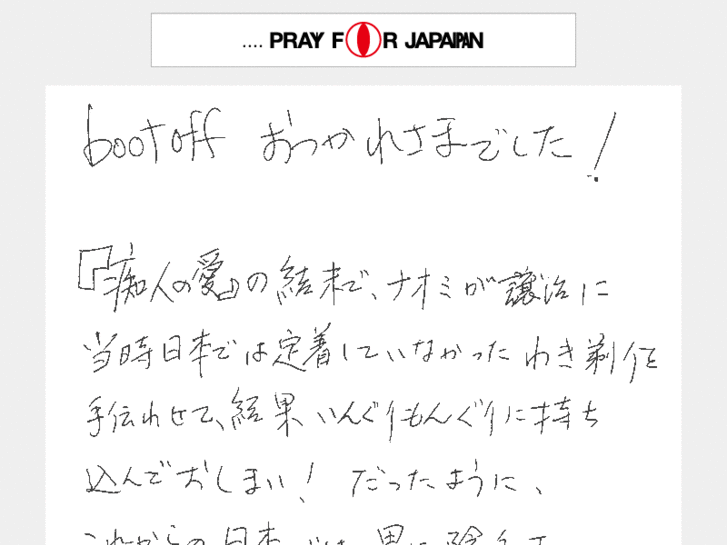 .... PRAY FOR JAPAIPAN
bootoff おつかれさまでした!
『痴人の愛』の結末で、ナオミが譲治に
当時日本では定着していなかったわき剃りを
手伝わせて、結果、いんぐりもんぐりに持ち
込んでおしまい! だったように、
これからの日本